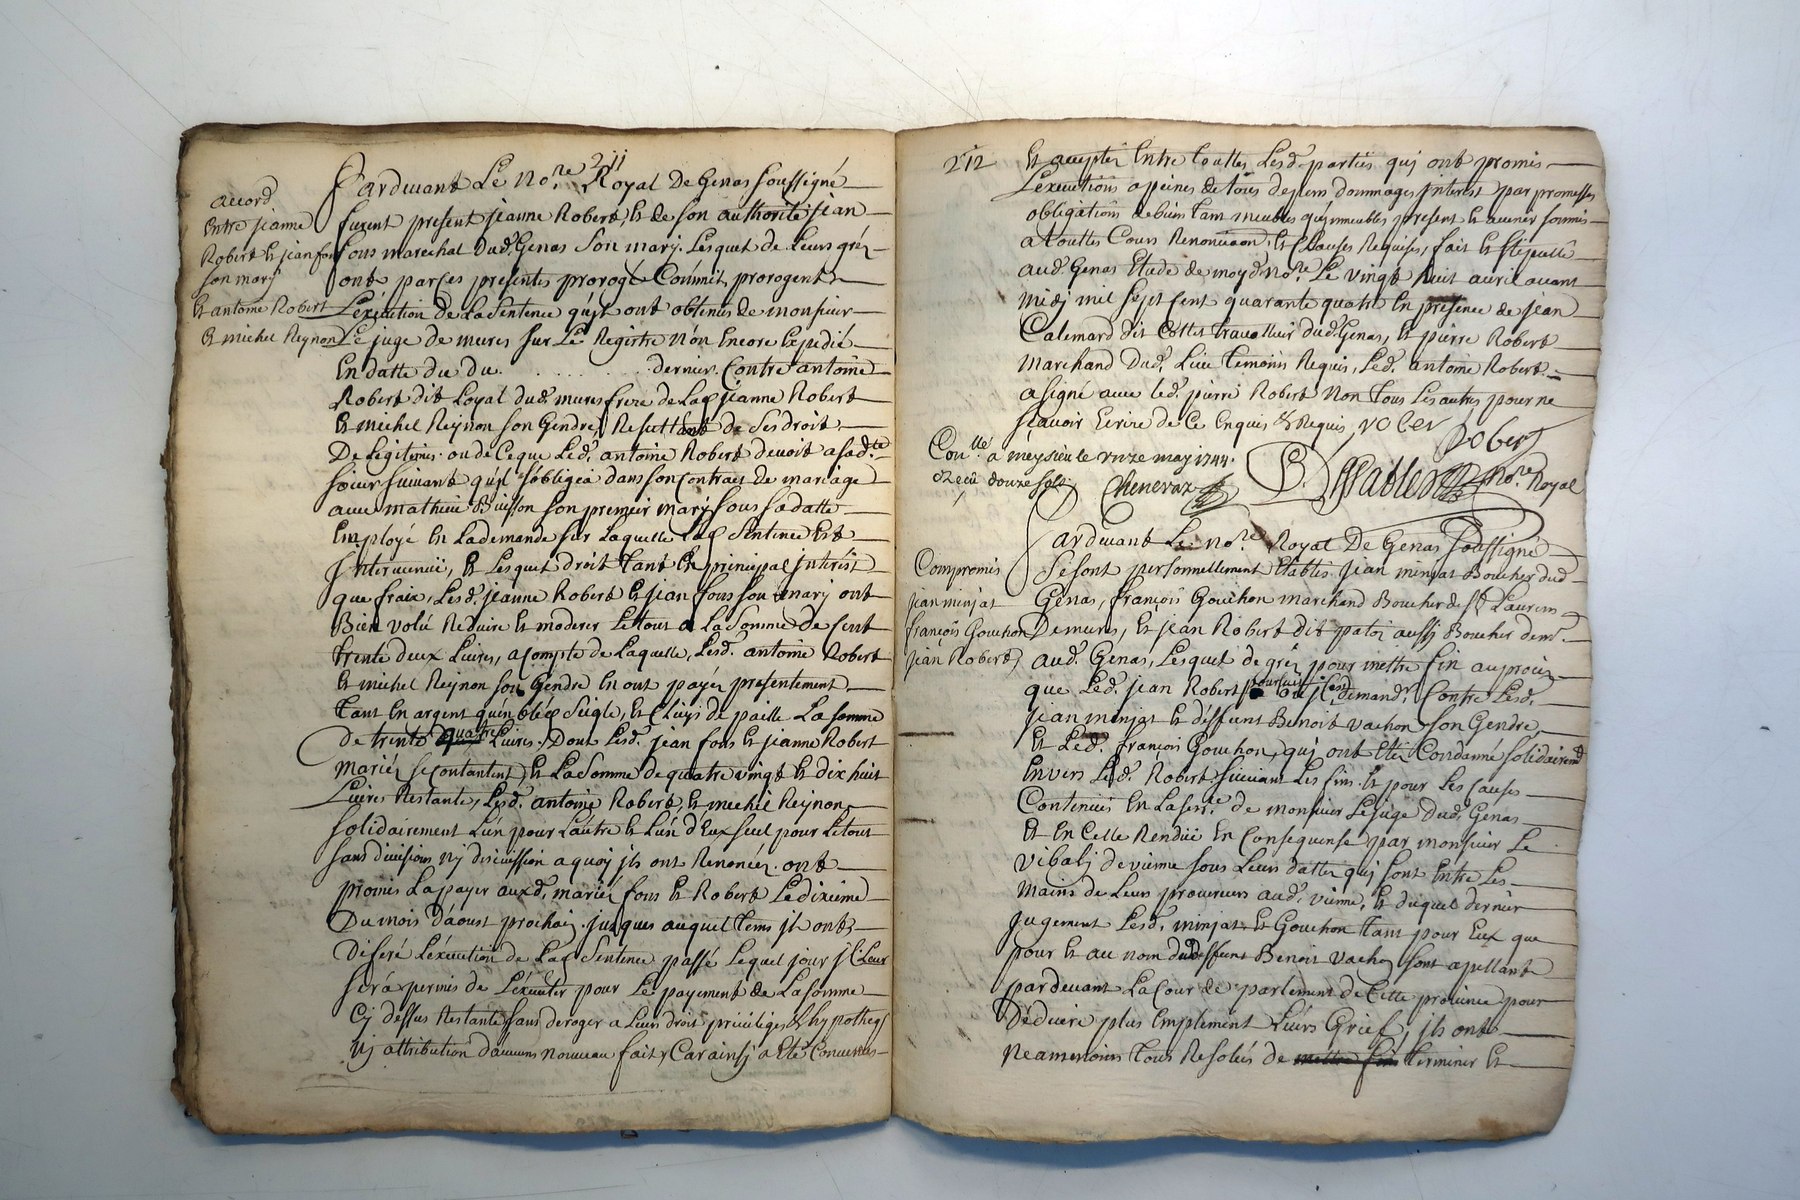 211
accord
Entre jeanne
Robert et jean fons
son mary
et antoine Robert
et michel Reynon
Pardevant Le No.re Royal De Genas soussigné
furent present jeanne Robert, et de son authorité jean
fons marechal dud. Genas son mary. Lesquels de Leurs gréz
ont par ces presentes prorogé Comme ils prorogent
L'exécution de La Sentence quils ont obtenue de monsieur
Le juge de mures sur Le Registre Non Encore Expedié
En datte du du . . . . . . . . dernier. Contre antoine
Robert dit Loyal dud. mures frere de Lad. jeanne Robert
et michel Reynon son Gendre, Resultant de ses droit
De Légitimes. ou de Ce que Led. antoine Robert devoit a sad.te
soeur suivant quil sobligea dans son Contract de mariage
avec mathieu Buisson son premier mary sous sa datte
Employé en La demande sur Laquelle Lad. Sentence Est
Intervenüe, et Lesquels droit Tant En principal Interest
que fraix, Lesd. jeanne Robert et jean fons son mary ont
Bien volu Reduire et moderer Le tout a La Somme de Cent
trente deux Livres, a Compte de Laquelle, Lesd. antoine Robert
et michel Reynon son Gendre En ont payéz presentement
Tant En argent quen bled Seigle, et Cluys de paille La somme
de trente quatre Livres. Dont Lesd. jean fons et jeanne Robert
mariéz se contantent, et La Somme de quatre vingt et dix huit
Livres Restante, Lesd. antoine Robert, et michel Reynon
solidairement L'un pour L'autre et L'un d'Eux seul pour Le tout
sans division ny discussion a quoy ils ont Renoncéz. ont
promis La payer auxd. mariéz fons et Robert Le dixieme
Du mois D'aoust prochain. jusques auquel Tems ils ont
Diferé L'exécution de Lad. Sentence passé Lequel jour il Leur
sera permis de L'executer pour Le payement de La Somme
Cy dessus Restante sans deroger a Leurs droit privileges & hypotheq
Ny attribution daucuns nouveau fait, Car ainsy a Eté Convenus
212
Et accepté Entre Touttes Lesd. parties qui ont promis
L'executions a peines de tous depens, dommages Interest par promesses
obligations de biens tam meubles quimmeubles present et avenir soumis
a Touttes Cours Renonciaon, et Clauses Requises, fait et stipullé
aud. Genas Etude de moyd. No.re Le vingt huit avril avant
midy mil sept Cent quarante quatre En presence de jean
Calemard dit Cottet travailleur dud. Genas, et pierre Robert
marchand Dud. Lieu temoins Requis, Led. antoine Robert
a signé avec led. pierre Robert Non Tous Les autres pour ne
sçavoir Ecrire de Ce Enquis & Requis, rober
robert
Con.llé a meysieu le onze may 1744.
Reçu douze sols
Chenevaz
No.re Royal
Compromis
jean minjat
françois Gouchon
jean Robert
Pardevant Le No.re Royal De Genas Soussigné
Se sont personnellement Etablis jean minjat Boucher dud.
Genas, françois Gouchon marchand Boucher de St Laurens
De mures, et jean Robert dit patoz aussy Boucher dem.t
aud. Genas, Lesquel de gréz pour mettre fin au procéz
que Led. jean Robert poursuivoit demand.r Contre Lesd.
jean minjat et deffunt Benoit vachon son Gendre,
et Led. françois Gouchon, qui ont Eté Condamné solidairem.t
Envers Led. Robert. suivant Les fins. et pour Les Causes
Contenües En La sen.ce de monsieur Le juge Dud. Genas
et En Celle Rendüe En Consequense par monsieur Le
vibaly de vienne sous Leurs dattes qui sont Entre Les
mains de Leurs procureurs aud. vienne, et duquel dernier
jugement Lesd. minjat et Gouchon tant pour Eux que
pour et au nom dud. deffunt Benoit vachon sont apellant
pardevant La Cour de parlement de Cette province pour
Deduire plus Emplement Leurs Grief, ils ont
Neamemoins tous Resolus de mettre fin terminer et